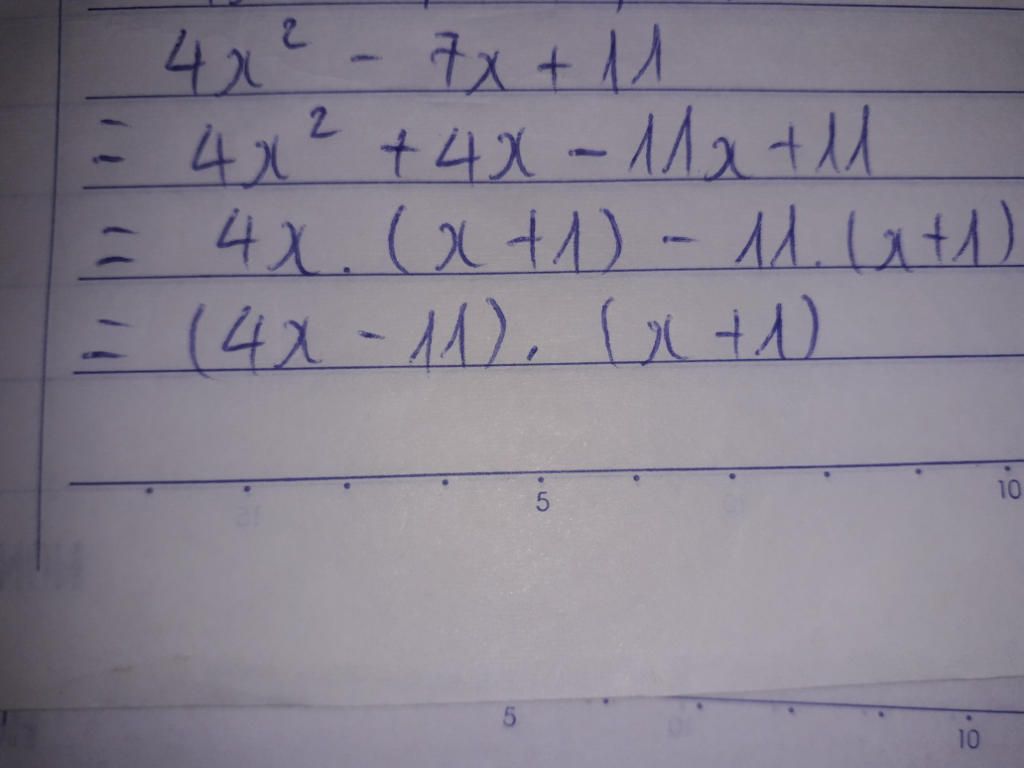 4x² - 7x + 11
= 4x² + 4x - 11x + 11
= 4x . (x + 1) - 11 . (x + 1)
= (4x - 11) . (x + 1)
5 10
5 10